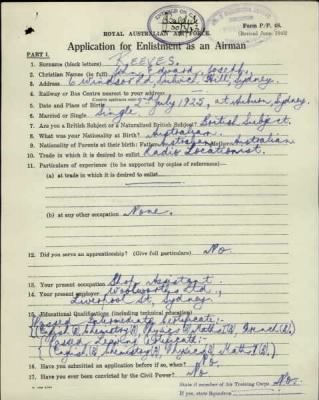 Form P/P. 48.
(Revised June, 1942)
ROYAL AUSTRALIAN AIR FORCE.
Application for Enlistment as an Airman
PART 1.
1. Surname (block letters) REEVES.
2. Christian Names (in full) Edward Joseph
3. Address Windsor Rd, Hill, Sydney.
4. Railway or Bus Centre nearest to which
5. Date and Place of Birth 2nd July 1925, at Auburn, Sydney.
6. Married or Single Single.
7. Are you a British Subject or a Naturalized British Subject? British Subject.
8. What was your Nationality at Birth? Australian.
9. Nationality of Parents at their birth: Father Australian Mother Australian
10. Trade in which it is desired to enlist Radio Locationist.
11. Particulars of experience (to be supported by copies of reference)—
(a) at trade in which it is desired to enlist
(b) at any other occupation None.
12. Did you serve an apprenticeship? (Give full particulars) No.
13. Your present occupation Shop Assistant.
14. Your present employer Woolworths Ltd.,
Liverpool St, Sydney.
15. Educational Qualifications (including technical education)
Passed Intermediate Certificate:-
(English (B) Chemistry (B) Physics (B) Maths I (B) French (B)
Passed Leaving Certificate:-
(English (B), Chemistry (B), Physics (B) Maths (B)
16. Have you submitted an application before if so, when? No.
17. Have you ever been convicted by the Civil Power? No
State if member of Air Training Corps No.
If yes, state Squadron